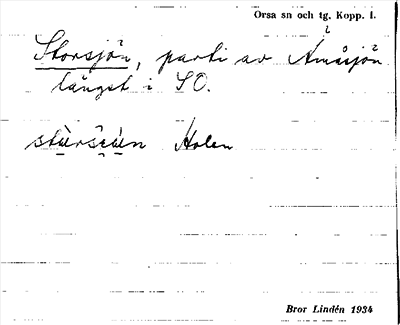 Orsa sn och tg. Kopp. l.
Storsjön, parti av Åmåsjön
längst i SO.
Holen
Bror Lindén 1934